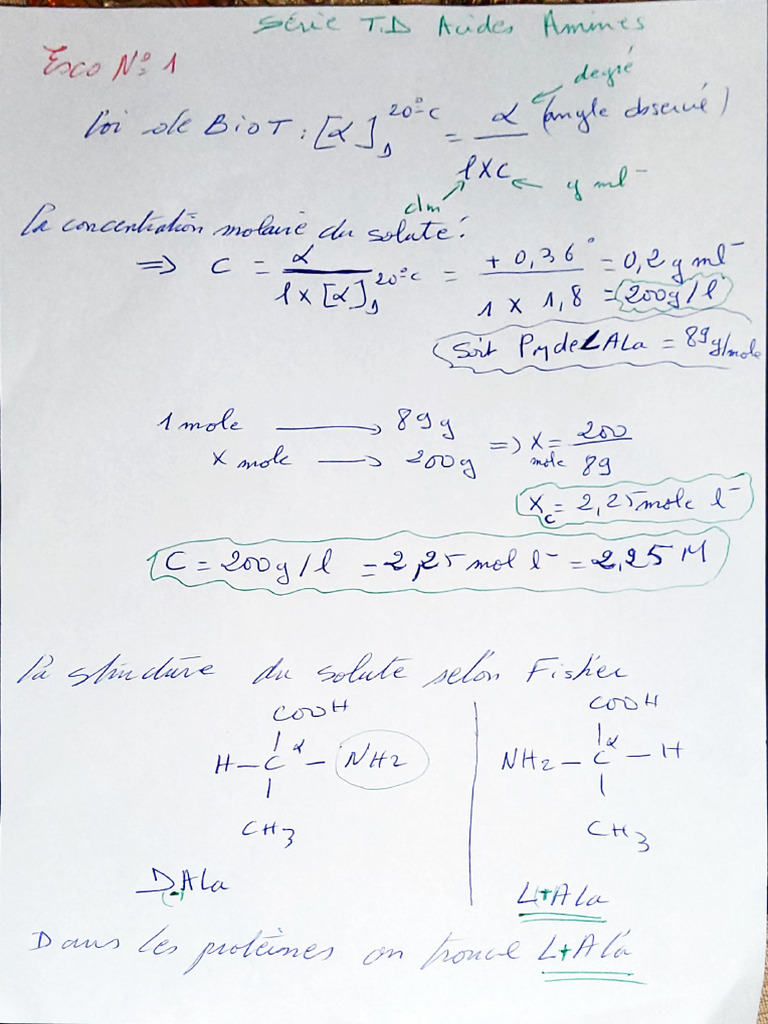 Série T.D Acides Aminés
Exco Nº 1
degré
Loi de BioT : [α]D 20°C = α (angle observé) / l x c
dm
g ml⁻
La concentration molaire du soluté :
=> C = α / l x [α]D 20°C = + 0,36° / 1 x 1,8 = 0,2 g ml⁻
= 200g/l
Soit PM de L ALa = 89g/mole
1 mole → 89 g
X mole → 200g => X mole = 200 / 89
Xc = 2,25 mole l⁻
C = 200g/l = 2,25 mol l⁻ = 2,25 M
La structure du soluté selon Fisher
COOH COOH
H – C α – NH2 NH2 – C α – H
CH3 CH3
D(-)ALa L+ALa
Dans les protéines on trouve L+Ala